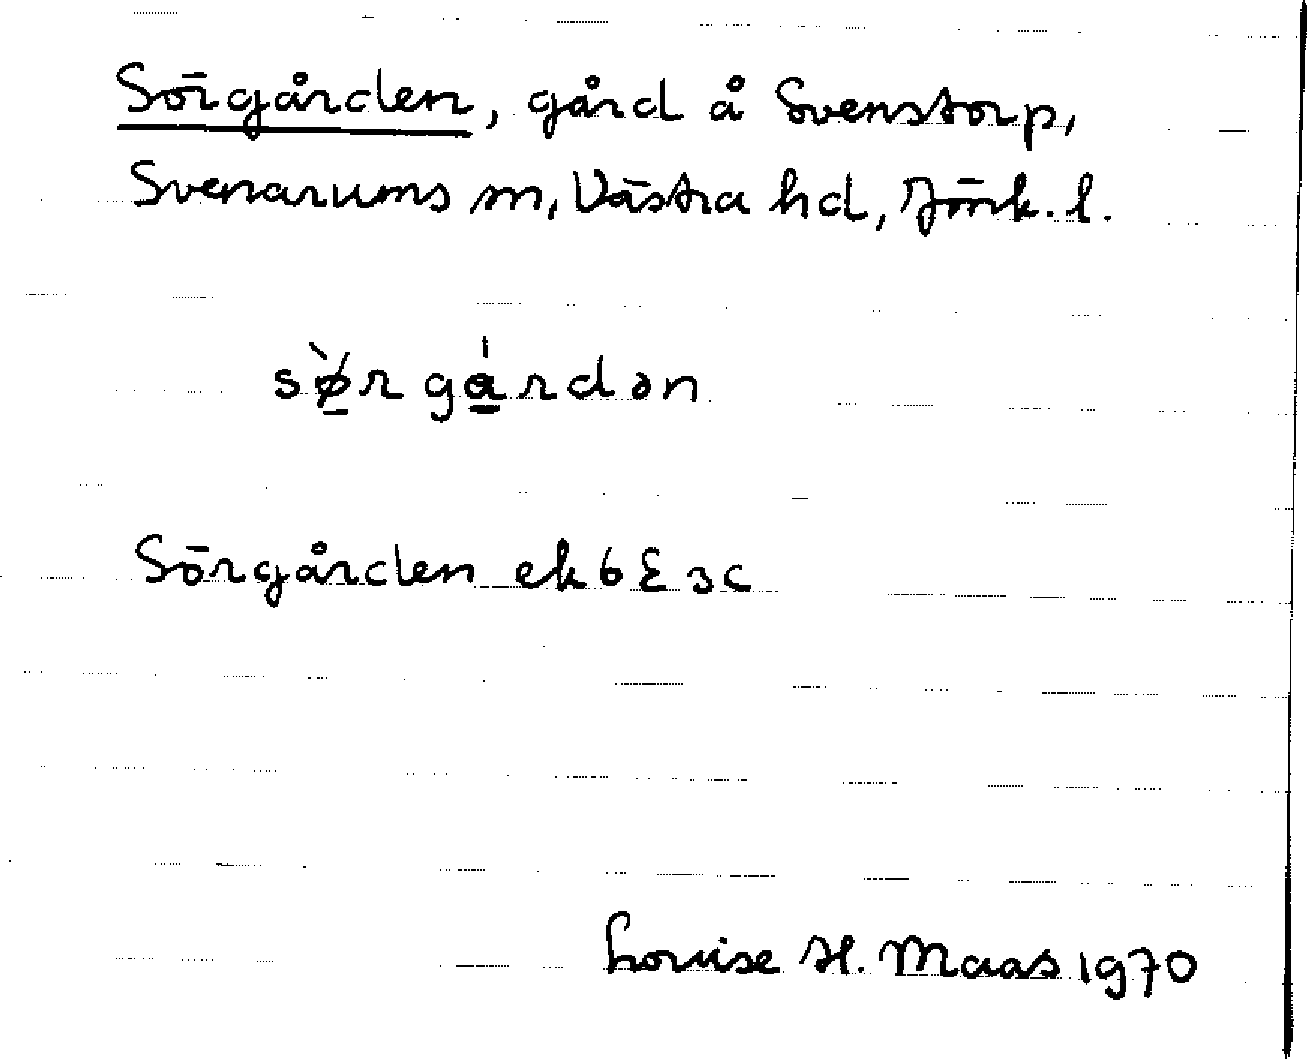 Sörgården, gård å Svenstorp,
Svenarums sn, Västra hd, Jönk. l.
sø̀rgárdən
Sörgården ek 6 E 3c
Louise H. Maas 1970